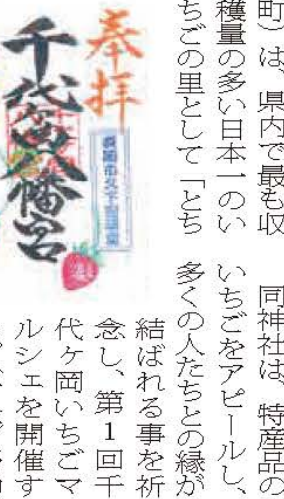 町）は、県内で最も収
穫量の多い日本一のい
ちごの里として「とち
同神社は、特産品の
いちごをアピールし、
多くの人たちとの縁が
結ばれる事を祈
念し、第1回千
代ヶ岡いちごマ
ルシェを開催す
奉拝
千代ヶ岡八幡宮